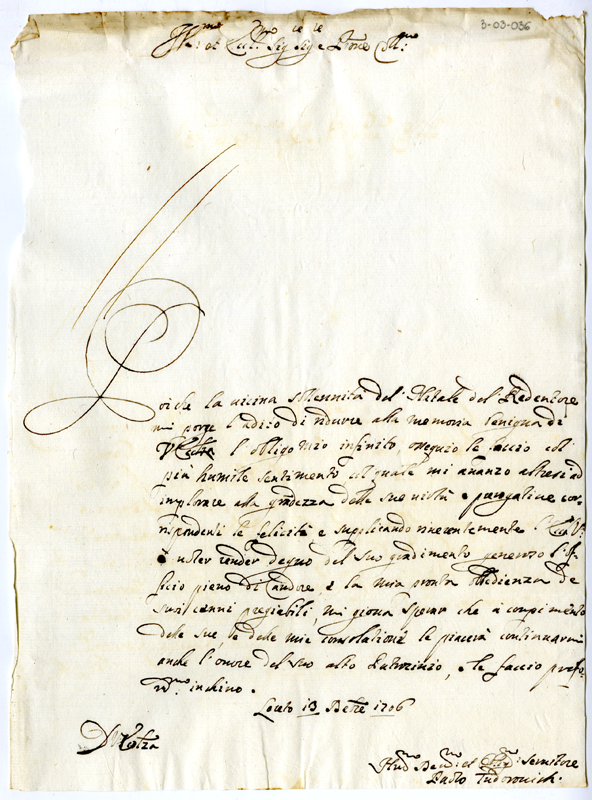 3-03-036
Ill:mo et Ecc:mo Sig: Sig:e Prone Coll:mo
Poiche la vicina sollennità del Natale del Redentore
mi porge l'adito di ridurre alla memoria benigna de
V Ecc:za l'obligo mio infinito, ossequio le faccio col
più humile sentimento col quale mi avanzo altresi ad
implorare alla grandezza delle sue virtù
rispondenti le felicità e suplicando riverentemente l'Ecc:za V:
à voler render degno del suo gradimento generoso l'of-
ficio pieno di Candore, e la mia pronta obedienza de
suoi cenni pregiabili, mi giova sperar che à compimento
delle sue le delle mie consolationi le piacerà continuarmi
anche l'onore del suo alto Patrocinio, e le faccio profon-
d:mo inchino.
13 Xbre 1706
D V Ecc:za
Hu:mo De:mo et Servitore
Paolo Tudorovich.